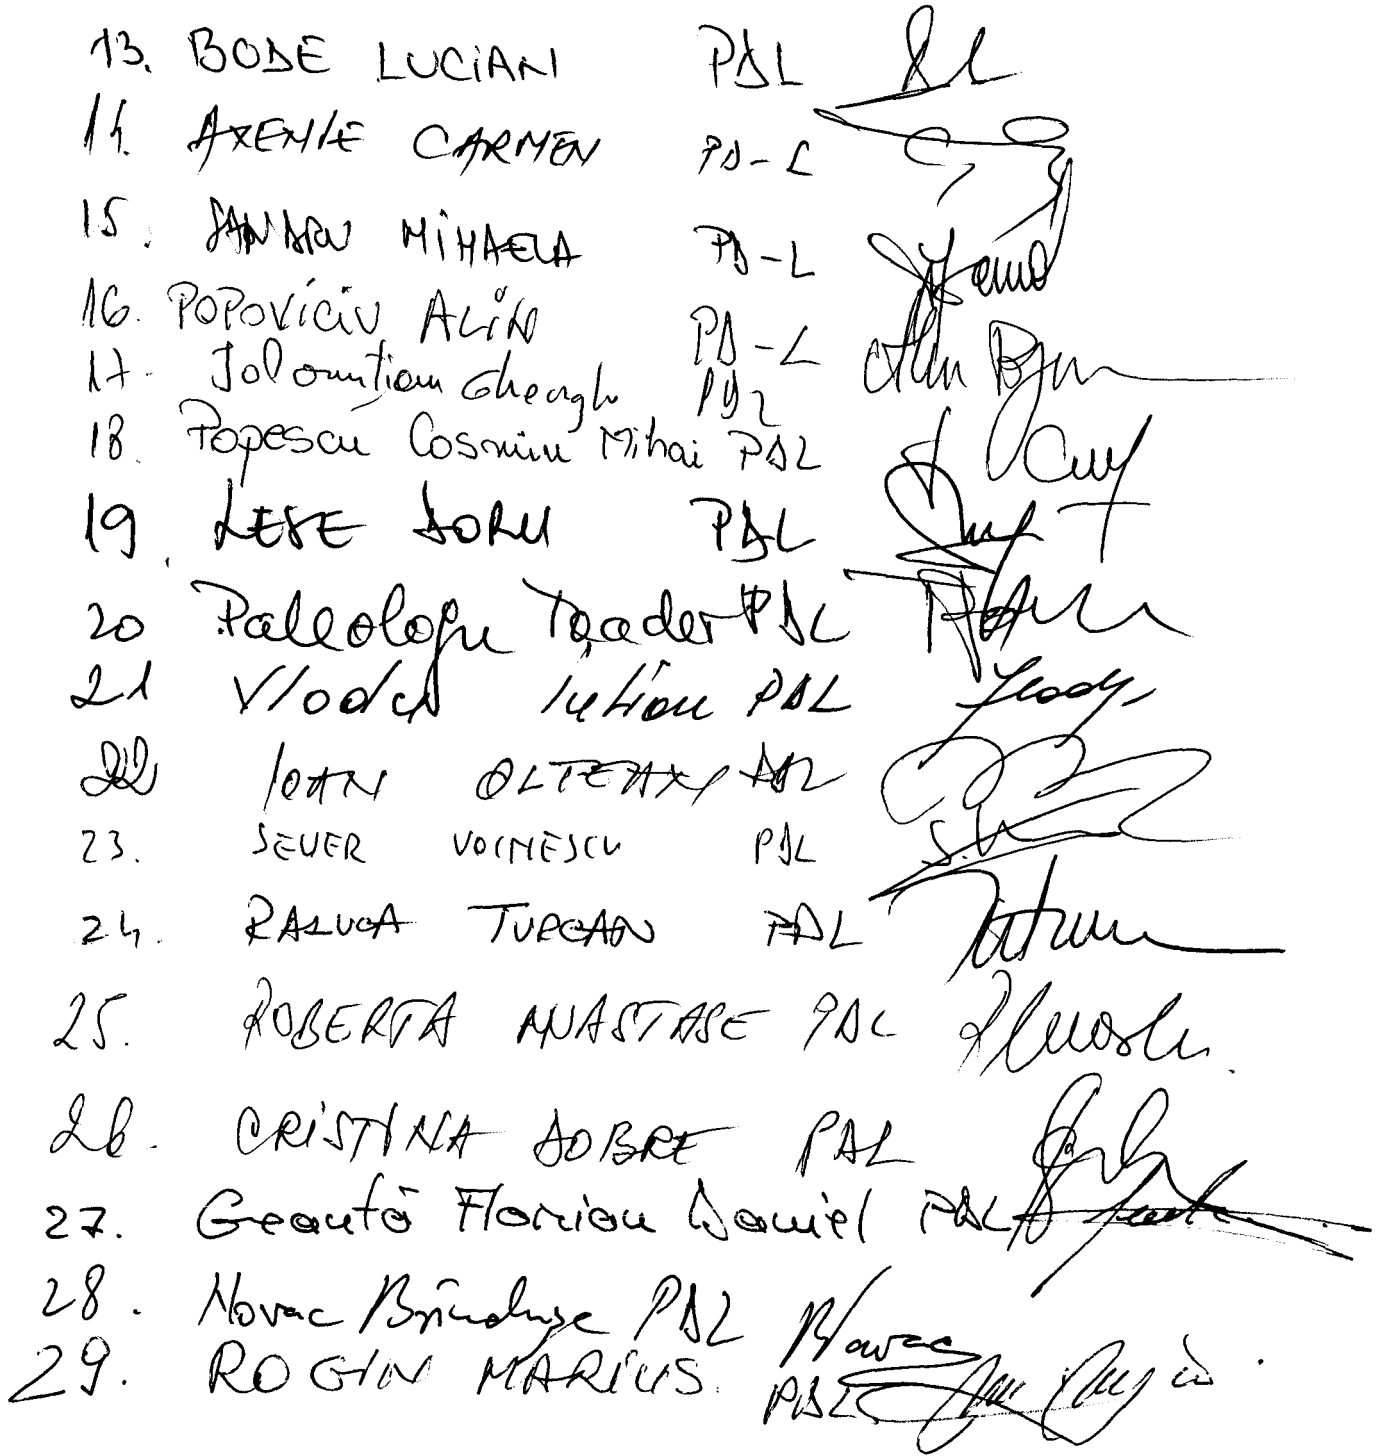 13. BODE LUCIAN PDL
14. AXENIE CARMEN PD-L
15. SANDRU MIHAELA PD-L
16. POPOVICIU ALIN PD-L
17. Ialomițianu Gheorghe PDL
18. Popescu Cosmin Mihai PDL
19. LESE DORU PDL
20 Paleologu Toader PDL
21 Vladu Iulian PDL
22 IOAN OLTEAN PDL
23. SEVER VOINESCU PDL
24. RALUCA TURCAN PDL
25. ROBERTA ANASTASE PDL
26. CRISTINA DOBRE PDL
27. Geantă Florian Daniel PDL
28. Novac Brîndușe PDL Novac
29. ROGIN MARIUS. PDL